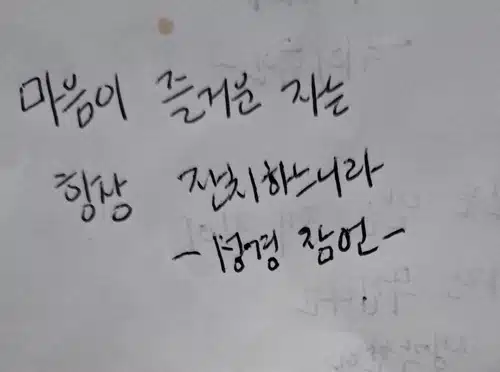 마음이 즐거운 자는
항상 잔치하느니라
-성경 잠언-